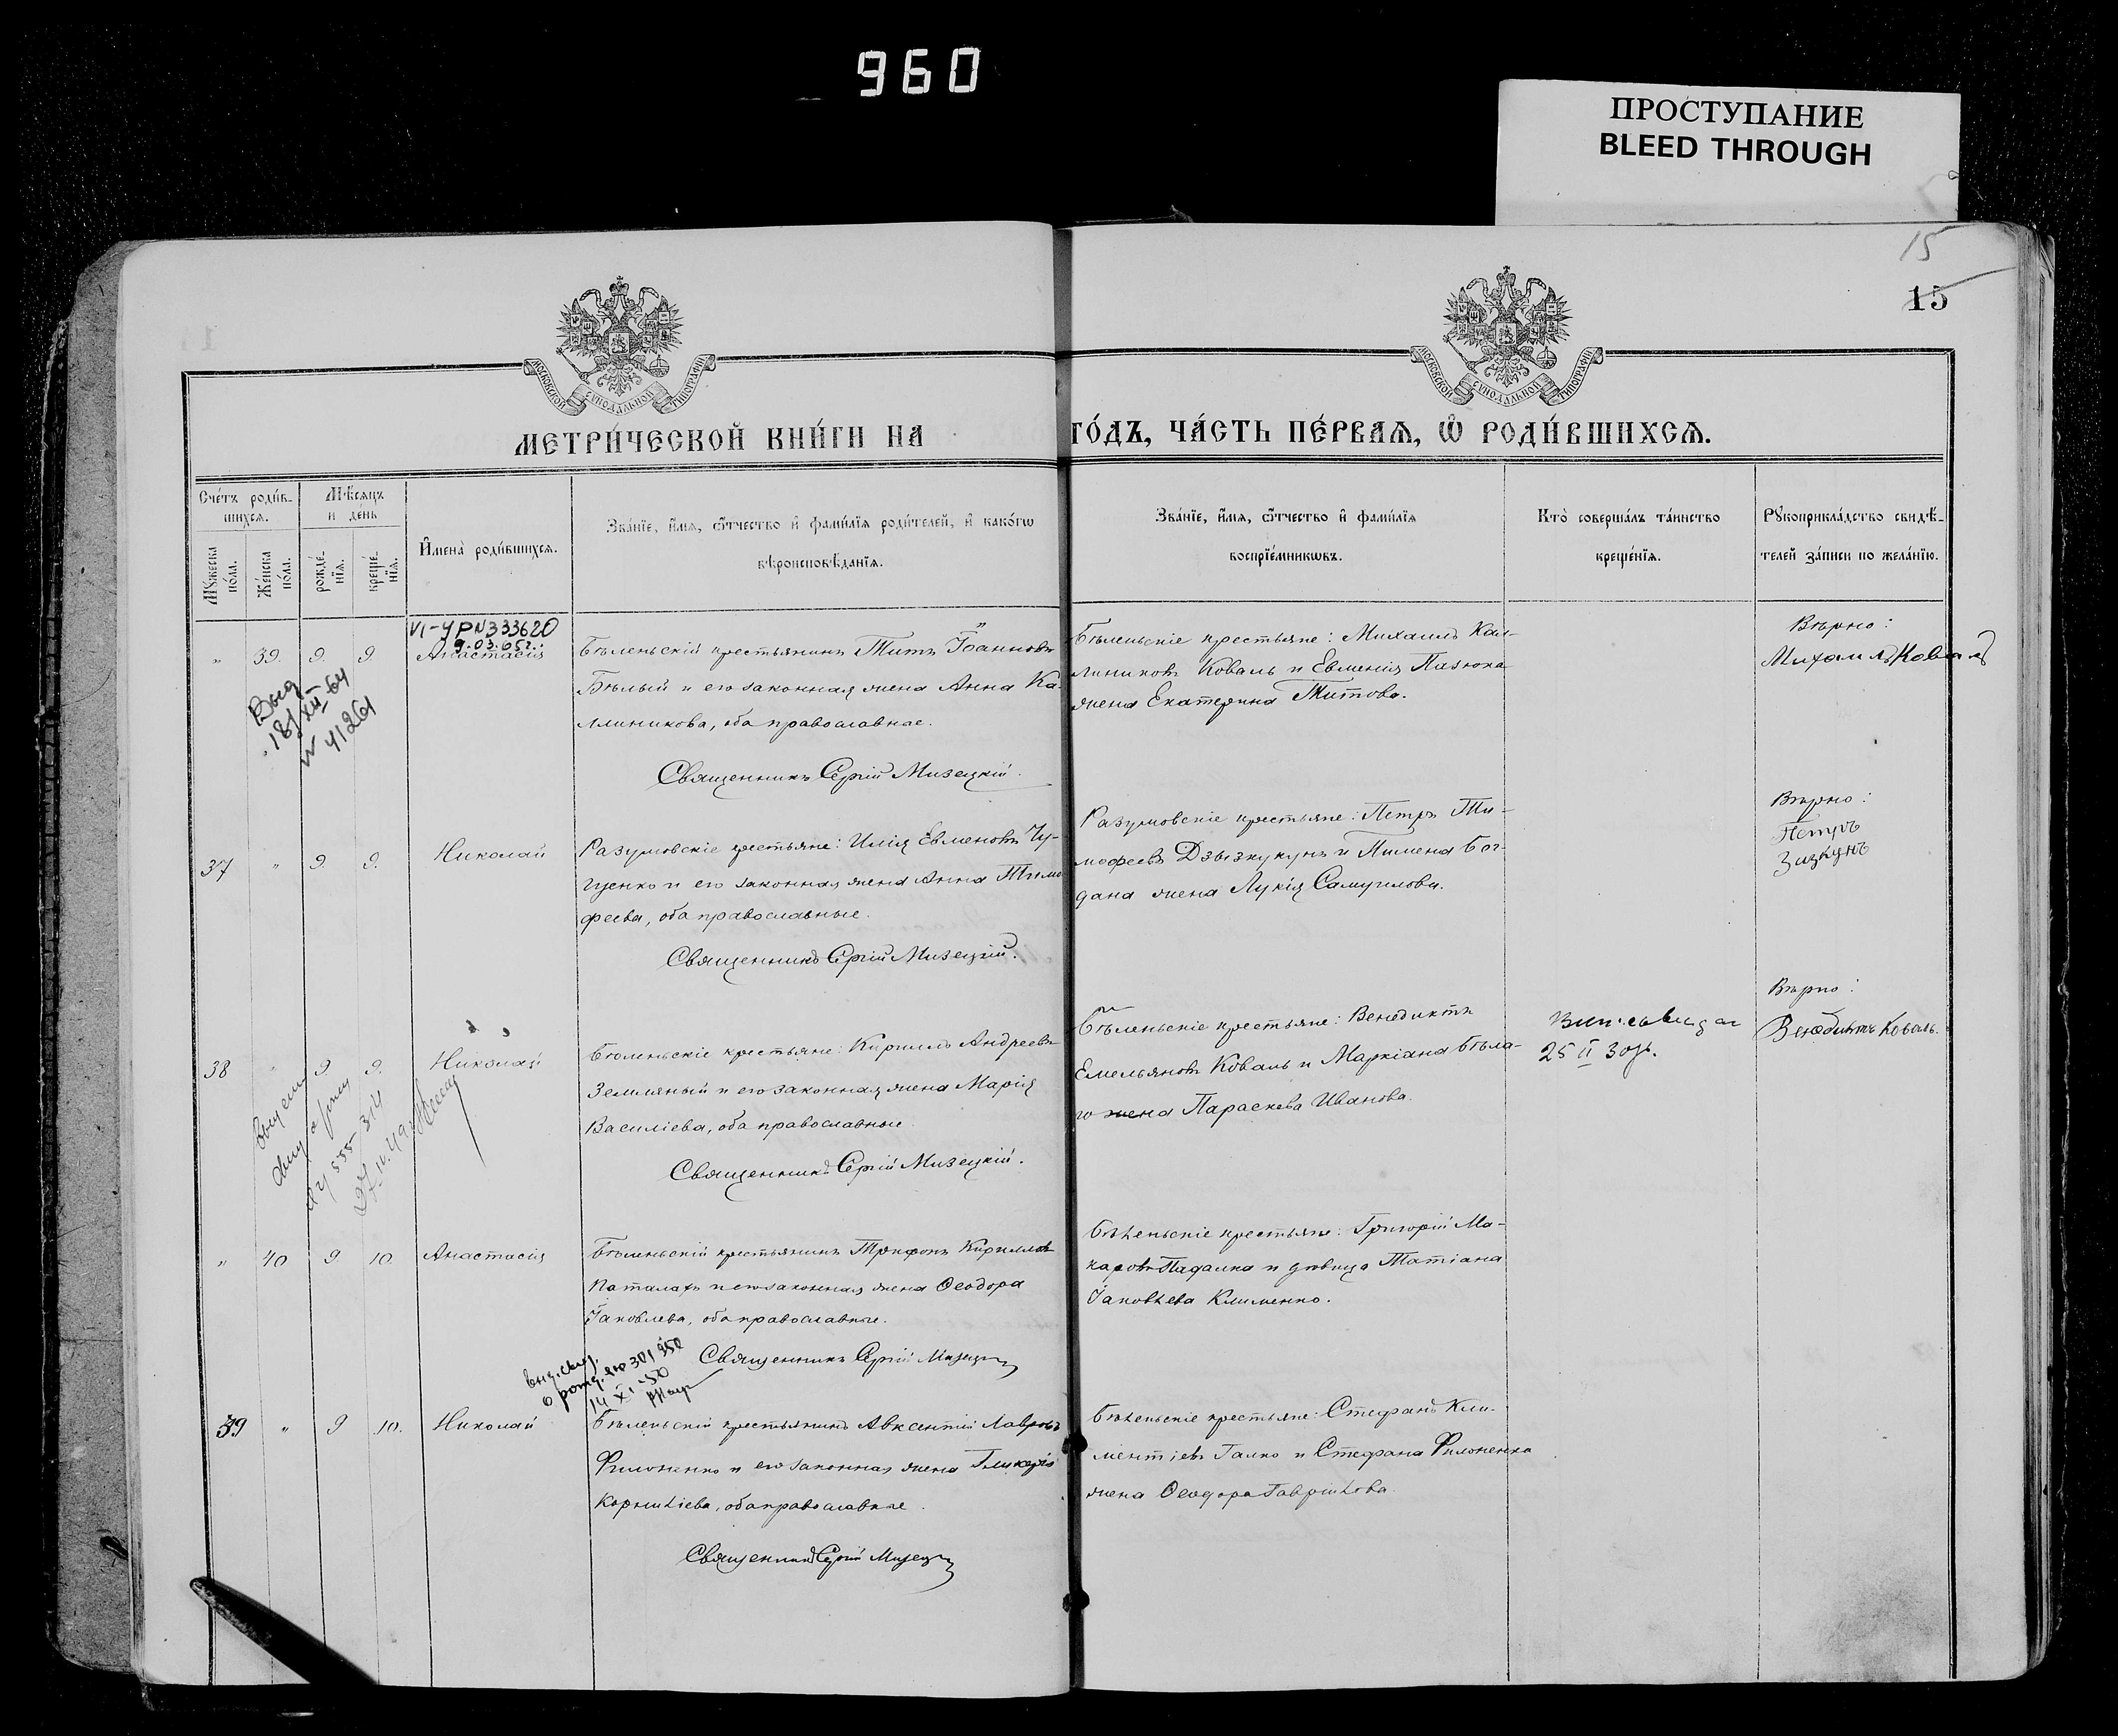 960
ПРОСТУПАНИЕ
BLEED THROUGH
15
15
МОСКОВСКОЙ СУНОДАЛЬНОЙ ТИПОГРАФІИ
МОСКОВСКОЙ СУНОДАЛЬНОЙ ТИПОГРАФІИ
МЕТРИ́ЧЕСКОЙ КНИ́ГИ НА ГО́ДЪ, ЧА́СТЬ ПЕ́РВАѦ, Ѽ РОДИ́ВШИХСѦ.
Сче́тъ роди́в-
шихся.
Мѣ́сяцъ
и де́нь
Мꙋ́жеска
по́ла.
Же́нска
по́ла.
рожде́-
нїя.
креще́-
нїя.
И҆мена̀ роди́вшихся.
Зва́нїе, и҆́мя, ѻ҆́тчество и҆ фами́лїя роди́телей, и҆ како́гѡ
вѣроисповѣ́данїя.
Зва́нїе, и҆́мя, ѻ҆́тчество и҆ фами́лїя
воспрїе́мникѡвъ.
Кто̀ соверша́лъ та́инство
креще́нїя.
Рꙋкоприкла́дство свидѣ́-
телей за́писи по жела́нїю.
VI-УР N333620
9.03.65г.
" 39. 9. 9. Анастасія
Выд
18/XII-64
№ 41261
Бѣленьскій крестьянинъ Титъ Іоанновъ
Бѣлый и его законная жена Анна Ка-
линикова, оба православные.
Священникъ Сергій Мизецкій.
Бѣленьскіе крестьяне: Михаилъ Кал-
линиковъ Коваль и Евменія Пазюка
жена Екатерина Титова.
Вѣрно:
Михаилъ Коваль
37 " 9. 9. Николай
Разумовскіе крестьяне: Илія Евменовъ Чу-
щенко и его законная жена Анна Тимо
феева, оба православные.
Священникъ Сергій Мизецкій.
Разумовскіе крестьяне: Петръ Ти-
мофеевъ Дзызкукунъ и Пимена Бог-
дана жена Лукія Самуилова.
Вѣрно:
Петръ
Зизкунъ
38 " 9 9. Николай
Бѣленьскіе крестьяне: Кириллъ Андреевъ
Земляный и его законная жена Марія
Василіева, оба православные
Священникъ Сергій Мизецкій.
Бѣленьскіе крестьяне: Венедиктъ
Емельяновъ Коваль и Маркіана Бѣла-
го жена Параскева Иванова.
25 II 30р.
Вѣрно:
Венедиктъ Коваль.
" 40 9. 10. Анастасія
Бѣленьскій крестьянинъ Трифонъ Кирилловъ
Паталахъ и его законная жена Ѳеодора
Іаковлева, оба православные.
Священникъ Сергій Мизецкій
Бѣленьскіе крестьяне: Григорій Ма-
каровъ Падалка и дѣвица Татіана
Іаковлева Клименко.
выд. свид.
о рожд. яю 301950
14 XI-50
39 " 9 10. Николай
Бѣленьскій крестьянинъ Авксентій Лавровъ
Филоненко и его законная жена Гликерія
Корниліева, оба православные.
Священникъ Сергій Мизецкій
Бѣленьскіе крестьяне: Стефанъ Кли-
ментіевъ Галко и Стефана Филоненка
жена Ѳеодора Гавріилова.